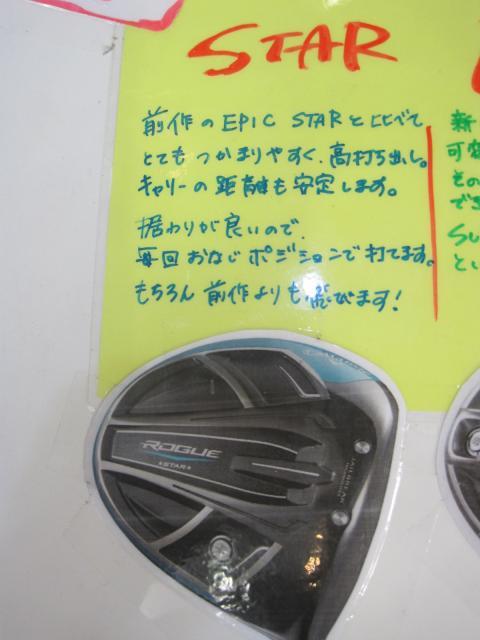 STAR
前作のEPIC STARと比べて
とてもつかまりやすく、高打ち出し。
キャリーの距離も安定します。
据わりが良いので、
毎回おなじポジションで打てます。
もちろん前作よりも飛びます!
新
可変
その
でき
Su
とい
ROGUE
STAR